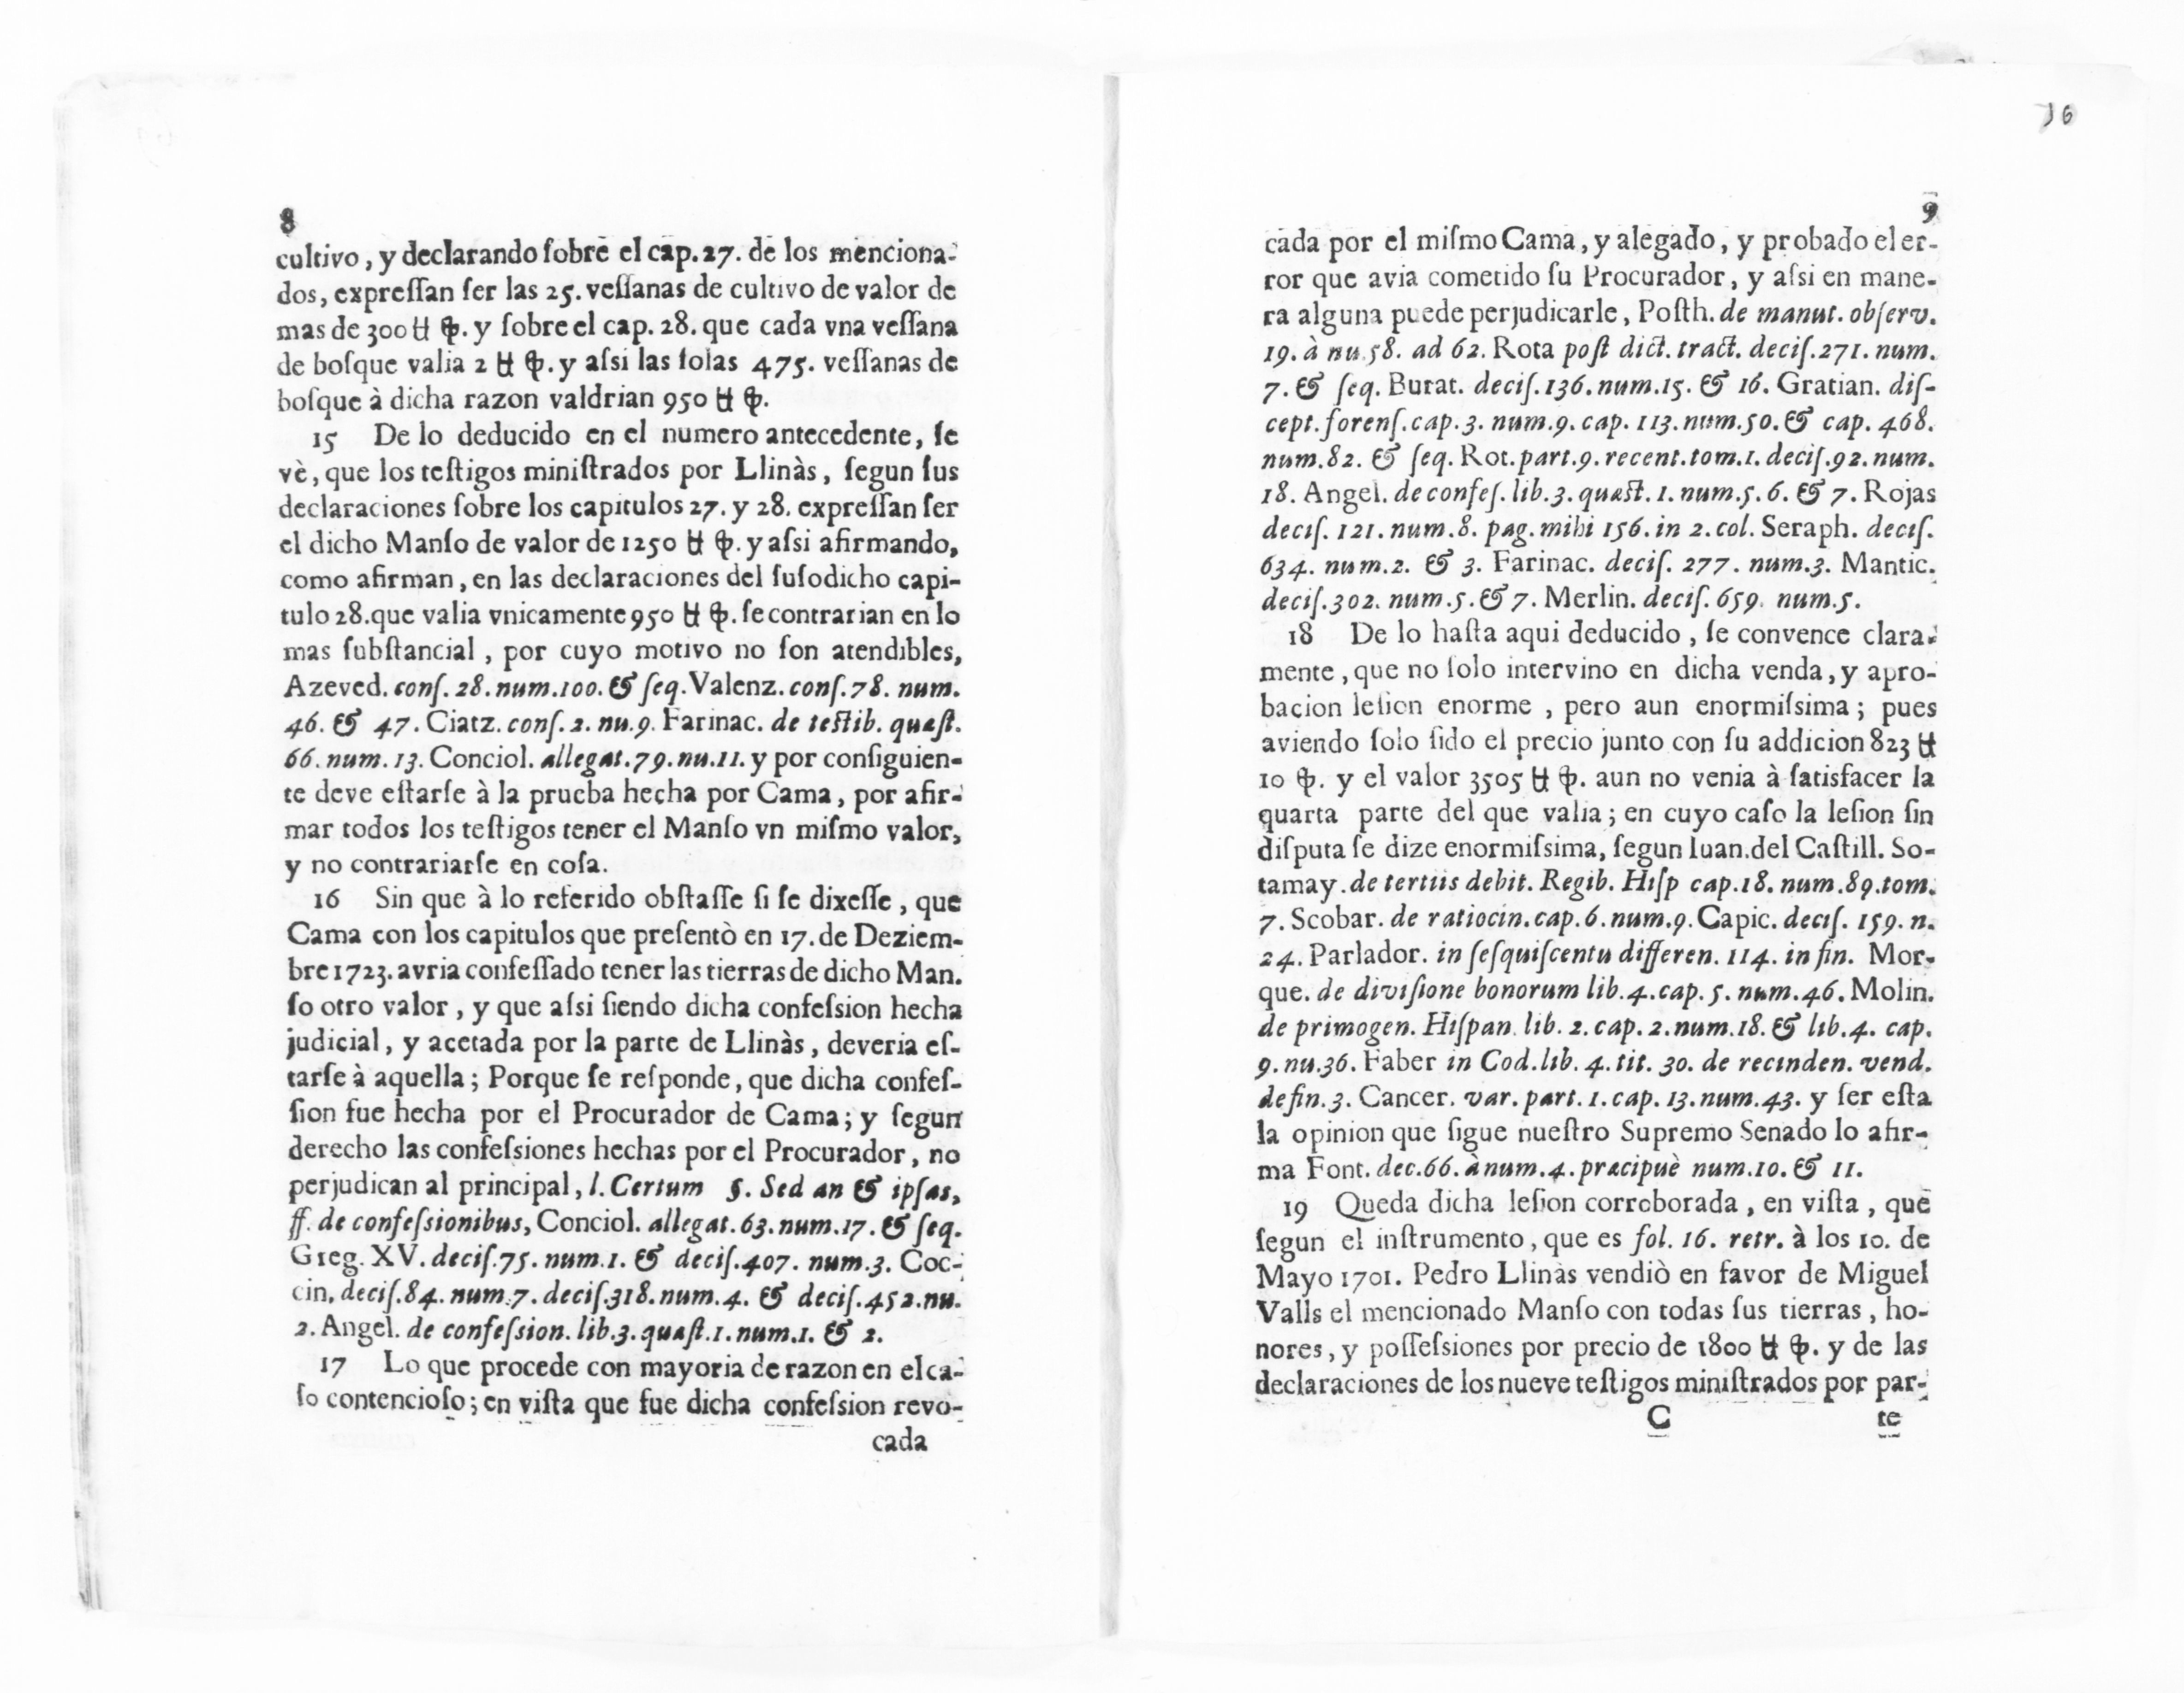 8
cultivo, y declarando ſobre el cap. 27. de los menciona-
dos, expreſſan ſer las 25. veſſanas de cultivo de valor de
mas de 300 ꟻ ꝕ. y ſobre el cap. 28. que cada vna veſſana
de boſque valia 2 ꟻ ꝕ. y aſsi las ſolas 475. veſſanas de
boſque à dicha razon valdrian 950 ꟻ ꝕ.
15 De lo deducido en el numero antecedente, ſe
vè, que los teſtigos miniſtrados por Llinàs, ſegun ſus
declaraciones ſobre los capitulos 27. y 28. expreſſan ſer
el dicho Manſo de valor de 1250 ꟻ ꝕ. y aſsi afirmando,
como afirman, en las declaraciones del ſuſodicho capi-
tulo 28. que valia vnicamente 950 ꟻ ꝕ. ſe contrarian en lo
mas ſubſtancial, por cuyo motivo no ſon atendibles,
Azeved. conſ. 28. num. 100. & ſeq. Valenz. conſ. 78. num.
46. & 47. Ciatz. conſ. 2. nu. 9. Farinac. de teſtib. quæſt.
66. num. 13. Conciol. allegat. 79. nu. 11. y por conſiguien-
te deve eſtarſe à la prueba hecha por Cama, por afir-
mar todos los teſtigos tener el Manſo vn miſmo valor,
y no contrariarſe en coſa.
16 Sin que à lo referido obſtaſſe ſi ſe dixeſſe, que
Cama con los capitulos que preſentò en 17. de Deziem-
bre 1723. avria confeſſado tener las tierras de dicho Man.
ſo otro valor, y que aſsi ſiendo dicha confeſsion hecha
judicial, y acetada por la parte de Llinàs, deveria eſ-
tarſe à aquella; Porque ſe reſponde, que dicha confeſ-
ſion fue hecha por el Procurador de Cama; y ſegun
derecho las confeſsiones hechas por el Procurador, no
perjudican al principal, l. Certum §. Sed an & ipſas,
ff. de confeſsionibus, Conciol. allegat. 63. num. 17. & ſeq.
Greg. XV. deciſ. 75. num. 1. & deciſ. 407. num. 3. Coc-
cin. deciſ. 84. num. 7. deciſ. 318. num. 4. & deciſ. 452. nu.
2. Angel. de confeſsion. lib. 3. quæſt. 1. num. 1. & 2.
17 Lo que procede con mayoria de razon en el ca-
ſo contencioſo; en viſta que fue dicha confeſsion revo-
cada
76
9
cada por el miſmo Cama, y alegado, y probado el er-
ror que avia cometido ſu Procurador, y aſsi en mane-
ra alguna puede perjudicarle, Poſth. de manut. obſerv.
19. à nu. 58. ad 62. Rota poſt dict. tract. deciſ. 271. num.
7. & ſeq. Burat. deciſ. 136. num. 15. & 16. Gratian. diſ-
cept. forenſ. cap. 3. num. 9. cap. 113. num. 50. & cap. 468.
num. 82. & ſeq. Rot. part. 9. recent. tom. 1. deciſ. 92. num.
18. Angel. de confeſ. lib. 3. quæſt. 1. num. 5. 6. & 7. Rojas
deciſ. 121. num. 8. pag. mihi 156. in 2. col. Seraph. deciſ.
634. num. 2. & 3. Farinac. deciſ. 277. num. 3. Mantic.
deciſ. 302. num. 5. & 7. Merlin. deciſ. 659. num. 5.
18 De lo haſta aqui deducido, ſe convence clara-
mente, que no ſolo intervino en dicha venda, y apro-
bacion leſion enorme, pero aun enormiſsima; pues
aviendo ſolo ſido el precio junto con ſu addicion 823 ꟻ
10 ꝕ. y el valor 3505 ꟻ ꝕ. aun no venia à ſatisfacer la
quarta parte del que valia; en cuyo caſo la leſion ſin
diſputa ſe dize enormiſsima, ſegun Iuan. del Caſtill. So-
tamay. de tertiis debit. Regib. Hiſp cap. 18. num. 89. tom.
7. Scobar. de ratiocin. cap. 6. num. 9. Capic. deciſ. 159. n.
24. Parlador. in ſeſquiſcentu differen. 114. in fin. Mor-
que. de diviſione bonorum lib. 4. cap. 5. num. 46. Molin.
de primogen. Hiſpan. lib. 2. cap. 2. num. 18. & lib. 4. cap.
9. nu. 36. Faber in Cod. lib. 4. tit. 30. de recinden. vend.
defin. 3. Cancer. var. part. 1. cap. 13. num. 43. y ſer eſta
la opinion que ſigue nueſtro Supremo Senado lo afir-
ma Font. dec. 66. à num. 4. præcipuè num. 10. & 11.
19 Queda dicha leſion corroborada, en viſta, que
ſegun el inſtrumento, que es fol. 16. retr. à los 10. de
Mayo 1701. Pedro Llinàs vendiò en favor de Miguel
Valls el mencionado Manſo con todas ſus tierras, ho-
nores, y poſſeſsiones por precio de 1800 ꟻ ꝕ. y de las
declaraciones de los nueve teſtigos miniſtrados por par-
C te